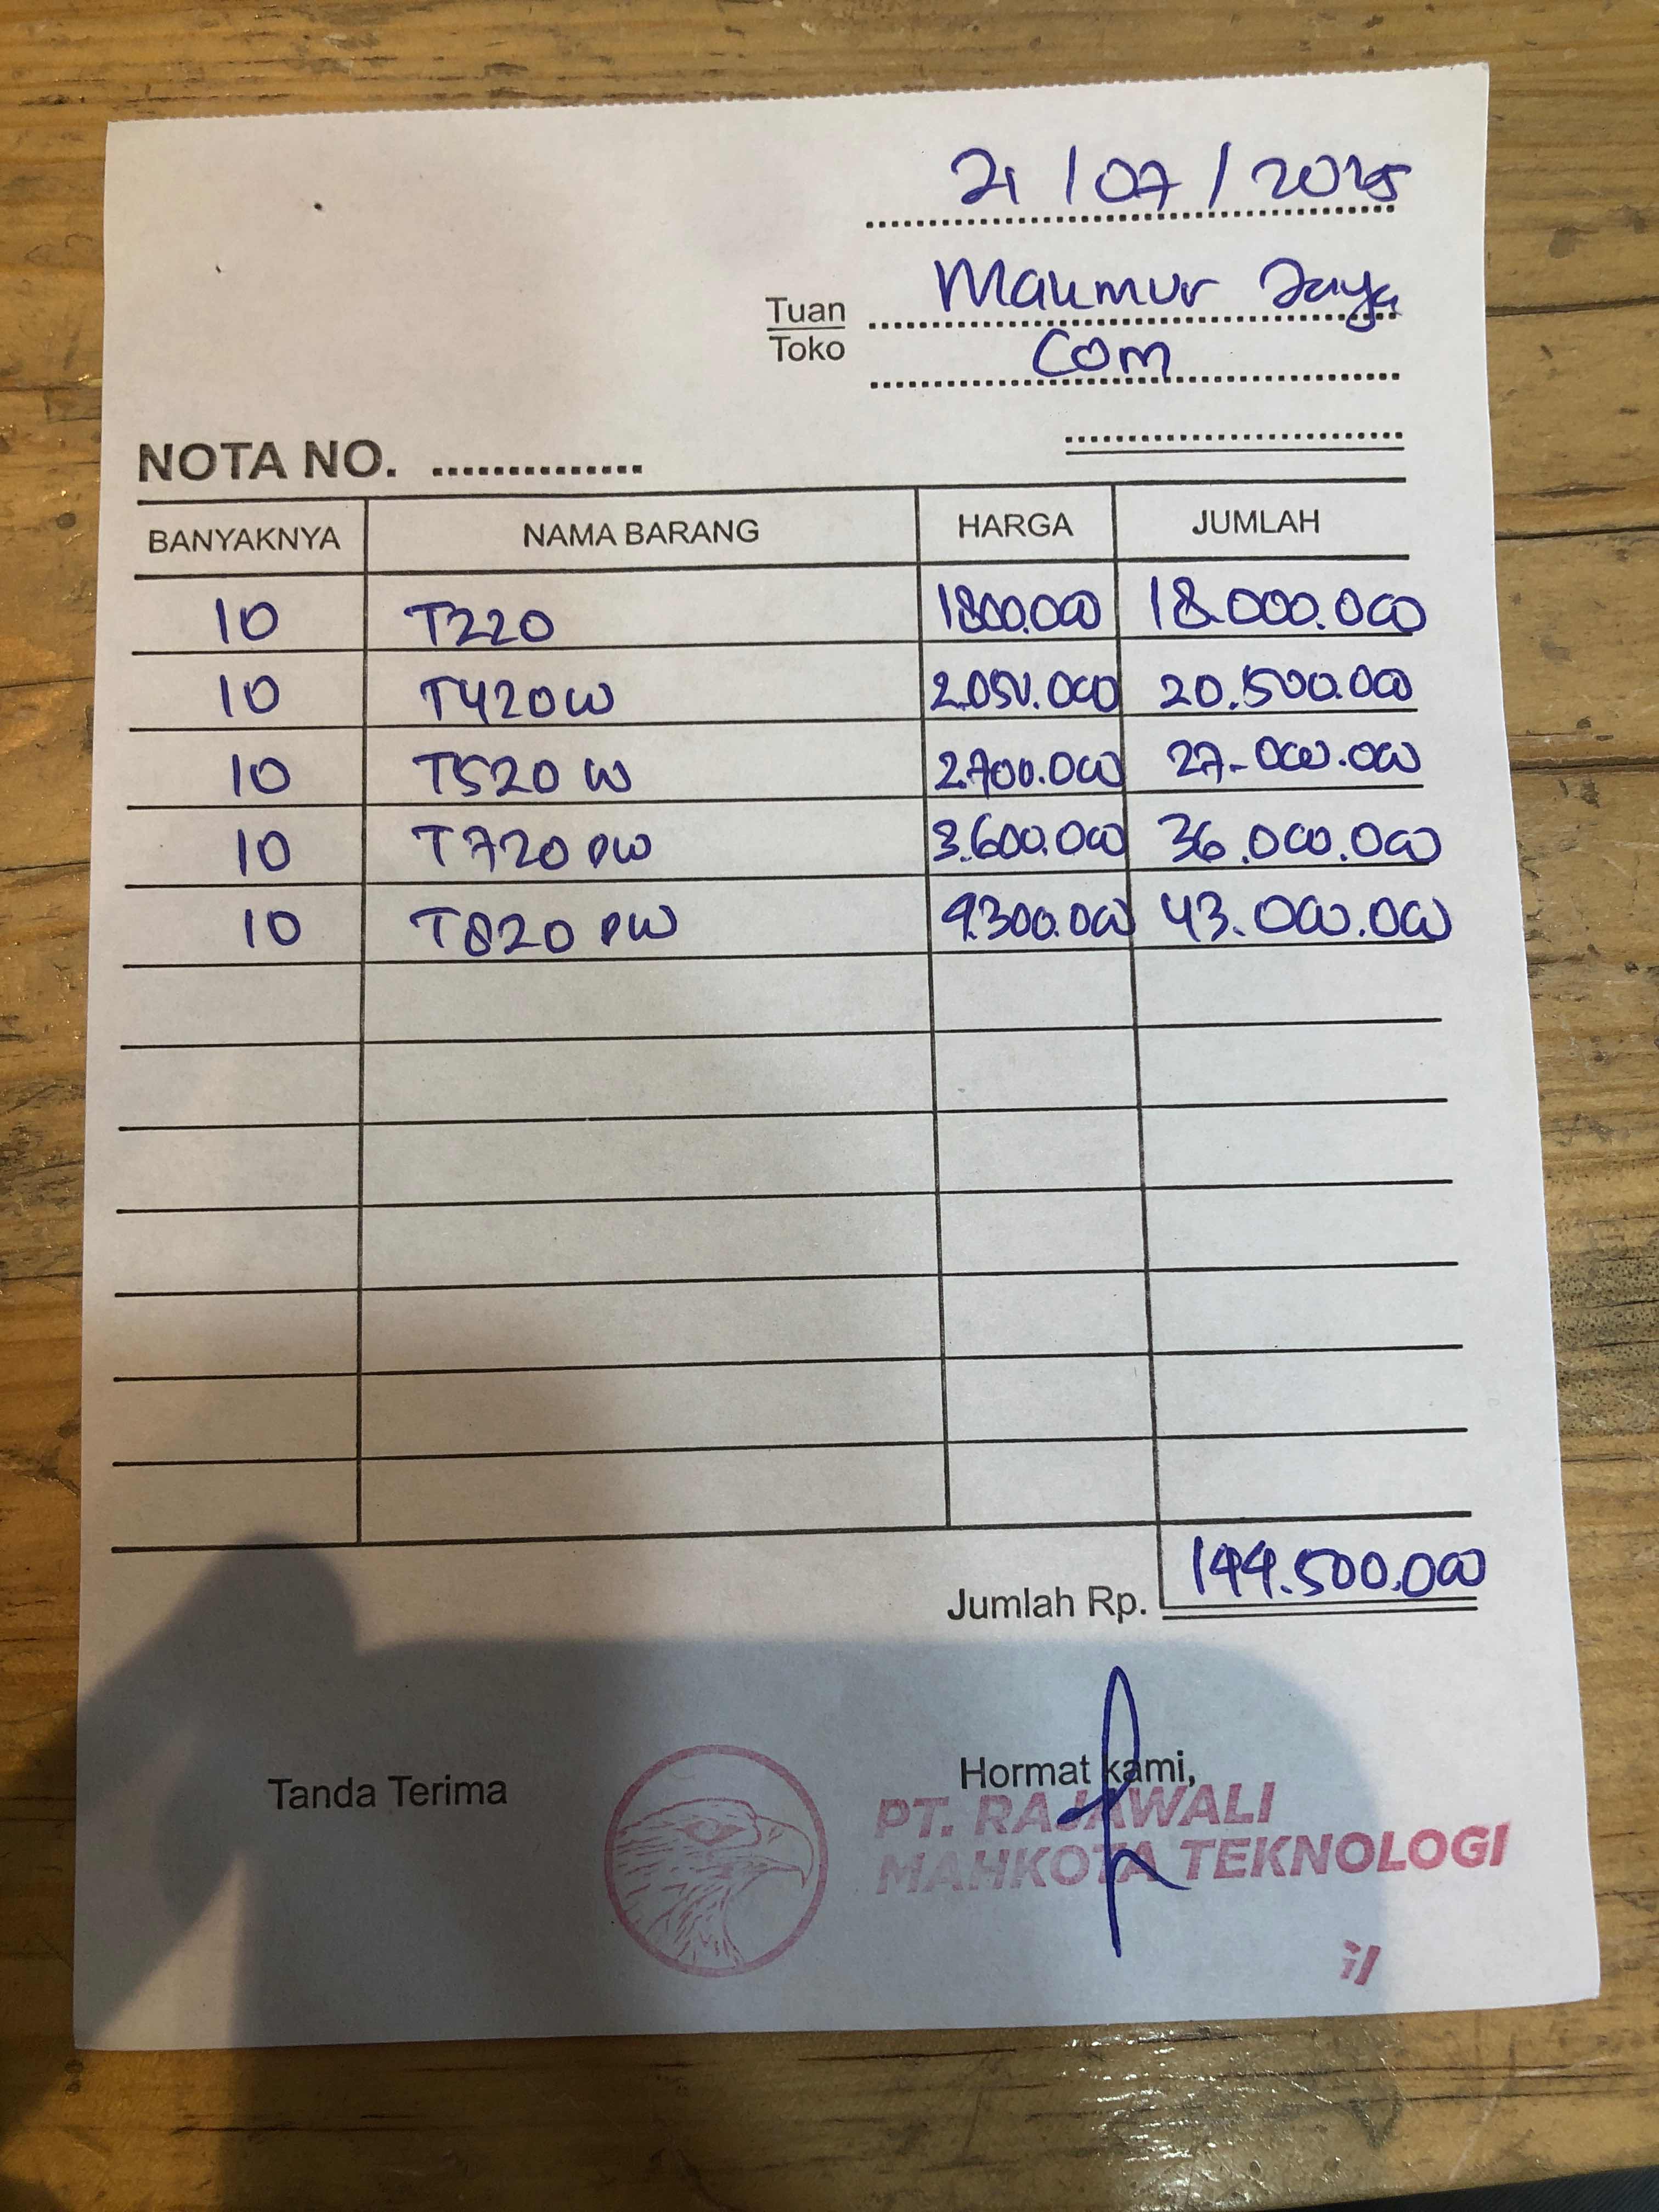 21/07/2025
Tuan Makmur Jaya
Toko Com
NOTA NO. ...............
BANYAKNYA NAMA BARANG HARGA JUMLAH
10 T220 1800.000 18.000.000
10 T420W 2.050.000 20.500.000
10 T520 W 2.700.000 27.000.000
10 T720 DW 3.600.000 36.000.000
10 T820 DW 4.300.000 43.000.000
Jumlah Rp. 144.500.000
Tanda Terima Hormat kami,
PT. RAJAWALI
MAHKOTA TEKNOLOGI